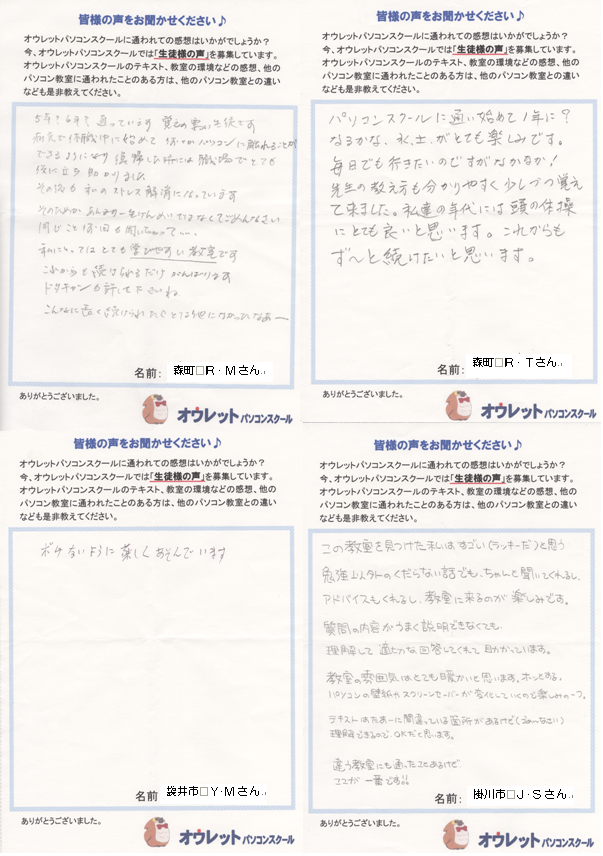 皆様の声をお聞かせください♪
オウレットパソコンスクールに通われての感想はいかがでしょうか？
今、オウレットパソコンスクールでは「生徒様の声」を募集しています。
オウレットパソコンスクールのテキスト、教室の環境などの感想、他の
パソコン教室に通われたことのある方は、他のパソコン教室との違い
なども是非教えてください。
5年？6年？通っています 覚えの悪い生徒です
始めて
できるようになり 復帰した時には職場でとても
役に立ち助かりました
その後も私のストレス解消になっています
ごめんなさい
同じこと何回も聞いちゃって…
私にとってはとても学びやすい教室です
これからも続けられるだけがんばります
ドタキャンも許して下さいね
こんなに長く続けられたとこ
名前： 森町□R・Mさん
ありがとうございました。
オウレットパソコンスクール
皆様の声をお聞かせください♪
オウレットパソコンスクールに通われての感想はいかがでしょうか？
今、オウレットパソコンスクールでは「生徒様の声」を募集しています。
オウレットパソコンスクールのテキスト、教室の環境などの感想、他の
パソコン教室に通われたことのある方は、他のパソコン教室との違い
なども是非教えてください。
パソコンスクールに通い始めて1年に？
なるかな、水、土、がとても楽しみです。
毎日でも行きたいのですがなかなか！
先生の教え方も分かりやすく少しづつ覚え
て来ました。私達の年代には頭の体操
にとても良いと思います。これからも
ず〜と続けたいと思います。
名前： 森町□R・Tさん
ありがとうございました。
オウレットパソコンスクール
皆様の声をお聞かせください♪
オウレットパソコンスクールに通われての感想はいかがでしょうか？
今、オウレットパソコンスクールでは「生徒様の声」を募集しています。
オウレットパソコンスクールのテキスト、教室の環境などの感想、他の
パソコン教室に通われたことのある方は、他のパソコン教室との違い
なども是非教えてください。
ボケないように楽しくあそんでいます
名前 袋井市□Y・Mさん
ありがとうございました。
オウレットパソコンスクール
皆様の声をお聞かせください♪
オウレットパソコンスクールに通われての感想はいかがでしょうか？
今、オウレットパソコンスクールでは「生徒様の声」を募集しています。
オウレットパソコンスクールのテキスト、教室の環境などの感想、他の
パソコン教室に通われたことのある方は、他のパソコン教室との違い
なども是非教えてください。
この教室を見つけた私はすごい(ラッキーだ)と思う
勉強以外のくだらない話でも、ちゃんと聞いてくれるし、
アドバイスもくれるし、教室に来るのが楽しみです。
質問の内容がうまく説明できなくても、
理解して適切な回答してくれて助かっています。
教室の雰囲気はとても暖かいと思います。ホッとする。
パソコンの壁紙やスクリーンセーバーが変化していくので楽しみの一つ。
テキストはたまーに間違っている箇所があるけど
理解できるので、OKだと思います。
違う教室にも通ったことあるけど
ここが一番です!!
名前： 掛川市□J・Sさん
ありがとうございました。
オウレットパソコンスクール